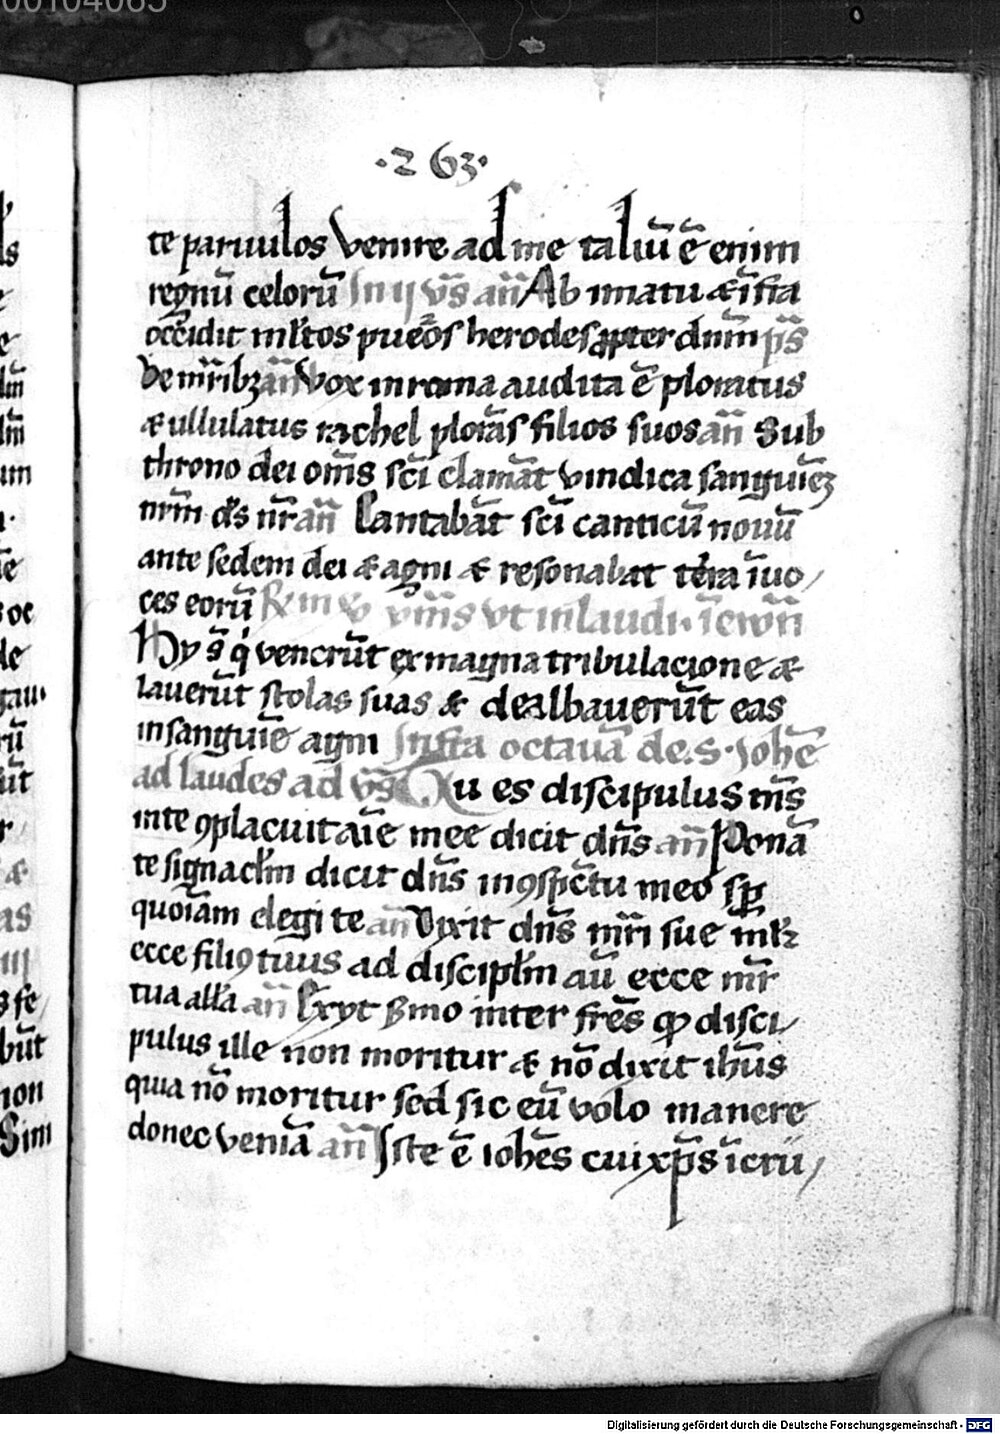 00104065
·263·
te paruulos venire ad me taliū ē enim
regnū celorū In ij vr̄s an̄ Ab imatu & īfra
occidit ml̄tos pueros herodes ꝓpter dnm̄ ps̄
Be mr̄ibꝫ an̄ Vox in rama audita ē ploratus
& ullulatus rachel plorās filios suos an̄ Sub
throno dei om̄s sc̄i clamāt vindica sanguiēꝫ
nrm̄ ds̄ nr̄ an̄ Cantabāt sc̄i canticū nouū
ante sedem dei & agni & resonabat terra ī uo/
ces eorū ut in laudi.
Hy s̄ q̄ venerūt ex magna tribulacione &
lauerūt stolas suas & dealbauerūt eas
in sanguīe agni Infra octauā de.s. Johē
ad laudes ad vs̄ Qu es discipulus ms̄
in te ꝯplacuit aīe mee dicit dn̄s an̄ Ponā
te signacl̄m dicit dn̄s in ꝯspc̄tu meo sp̄
quoīam elegi te an̄ Dixit dn̄s mr̄i sue
ecce filiꝰ tuus ad discipl̄m aū ecce mr̄
tua all̄a an̄ Exyt s̄mo inter fr̄es ꝙ disci/
pulus ille non moritur & nō dixit ihūs
quia nō moritur sed sic eū volo manere
donec veniā an̄ Iste ē iohēs cui xp̄s ī cru/
Digitalisierung gefördert durch die Deutsche Forschungsgemeinschaft - DFG